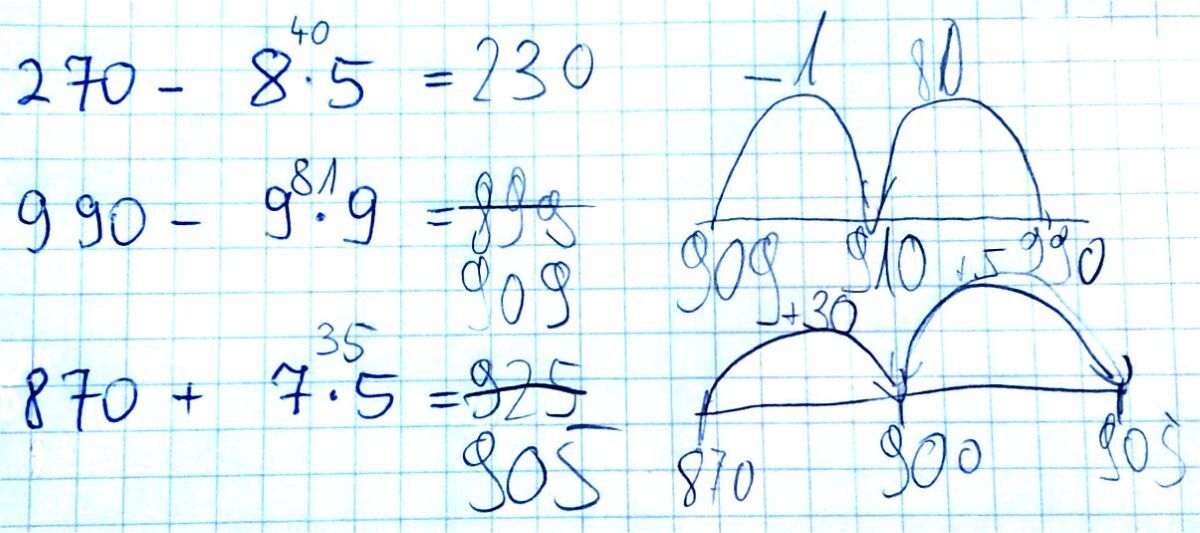 40
270 - 8·5 = 230
81
990 - 9·9 = 899
909
35
870 + 7·5 = 925
905
-1 80
909 910 990
+30 +5
870 900 905